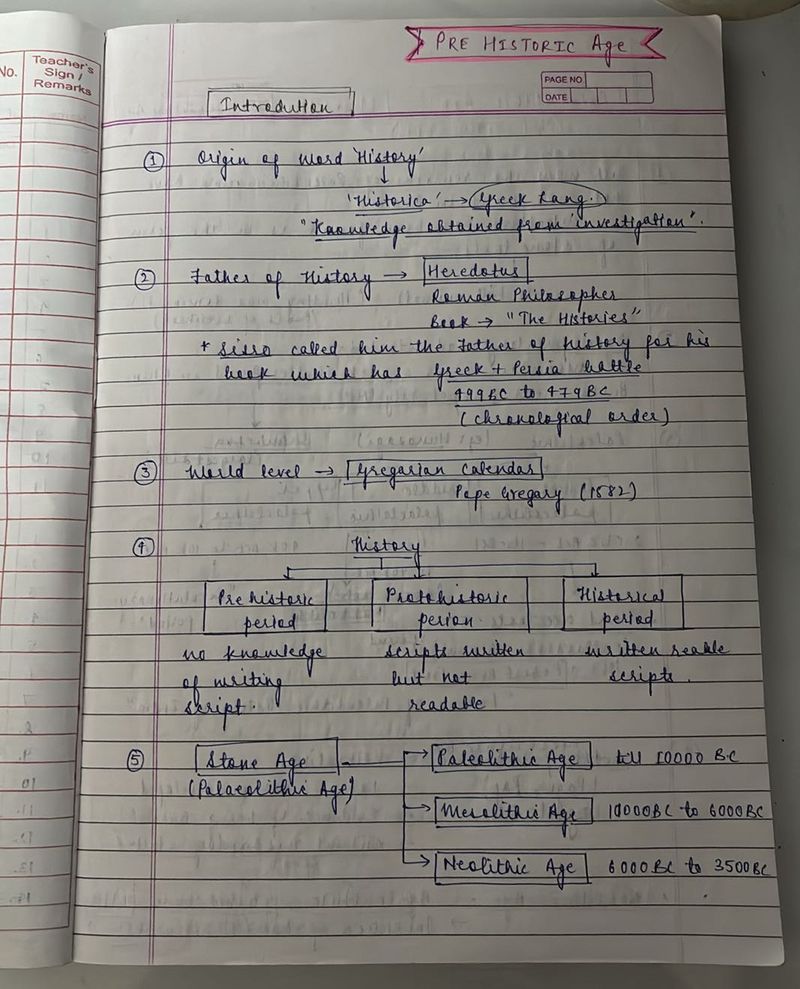 No.
Teacher's
Sign /
Remarks
PRE HISTORIC Age
PAGE NO
DATE
Introdution
① Origin of word 'History'
↓
'Historica' → Greek Lang.
"Knowledge obtained from investigation".
② Father of History → Heredotus
Roman Philosopher
Book → "The Histories"
* Sisro called him the Father of History for his
book which has Greek + Persia battle
499BC to 479BC
(chronological order)
③ World level → Gregarian Calendar
Pope Gregary (1582)
④ History
Pre historic period
Protohistoric perion
Historical period
no knowledge of writing script.
scripts written but not readable
written reable scripts.
⑤ Stone Age → Paleolithic Age till 10000 BC
(Palaeolithic Age)
→ Mesolithic Age 10000BC to 6000BC
→ Neolithic Age 6000BC to 3500BC